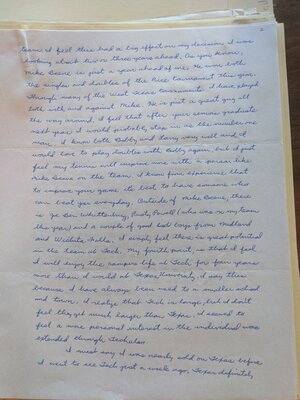 2
team. I feel this had a big effect on my decision. I was
looking about two or three years ahead. As you know,
Mike Beene is just a year ahead of me. He won both
the singles and doubles of the Rice tournament this year.
Through many of the West Texas Tournaments I have played
both with and against Mike. He is just a great guy all
the way around. I feel that after your seniors graduate
next year I would probably step in as the number one
man. I know both Bubby and Larry very well and I
would love to play doubles with Bubby again, but I just
feel my tennis will improve more with a person like
Mike Beene on the team. I know from experience that
to improve your game its best to have someone who
can beat you everyday. Outside of Mike Beene, there
is Joe Ben Whittenburg, Rusty Powell (who was on my team
this year) and a couple of good lookin boys from Midland
and Wichita Falls. I simply feel there is great potential
in the team at Tech. My fourth point is that I feel
I will enjoy the campus life at Tech for four years
more than I would at Texas University. I say this
because I have always been used to a smaller school
and town. I realize that Tech is large, but I don't
feel they get much larger than Texas. I seemed to
feel a more personal interest in the individual was
extended through Tech
I must say I was nearly sold on Texas before
I went to see Tech just a week ago. Texas definitely